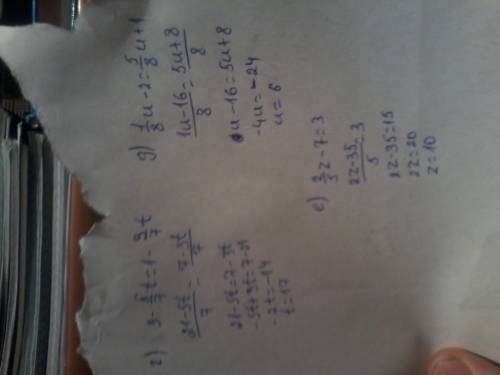 г) 3 - 5/7 t = 1 - 3/7 t
21-5t/7 = 7-3t/7
21-5t=7-3t
-5t+3t=7-21
-2t=-14
t=17
д) 1/8 u - 2 = 5/8 u + 1
1u-16/8 = 5u+8/8
u-16=5u+8
-4u=-24
u=6
е) 2/5 z - 7 = 3
2z-35/5 = 3
2z-35=15
2z=20
z=10